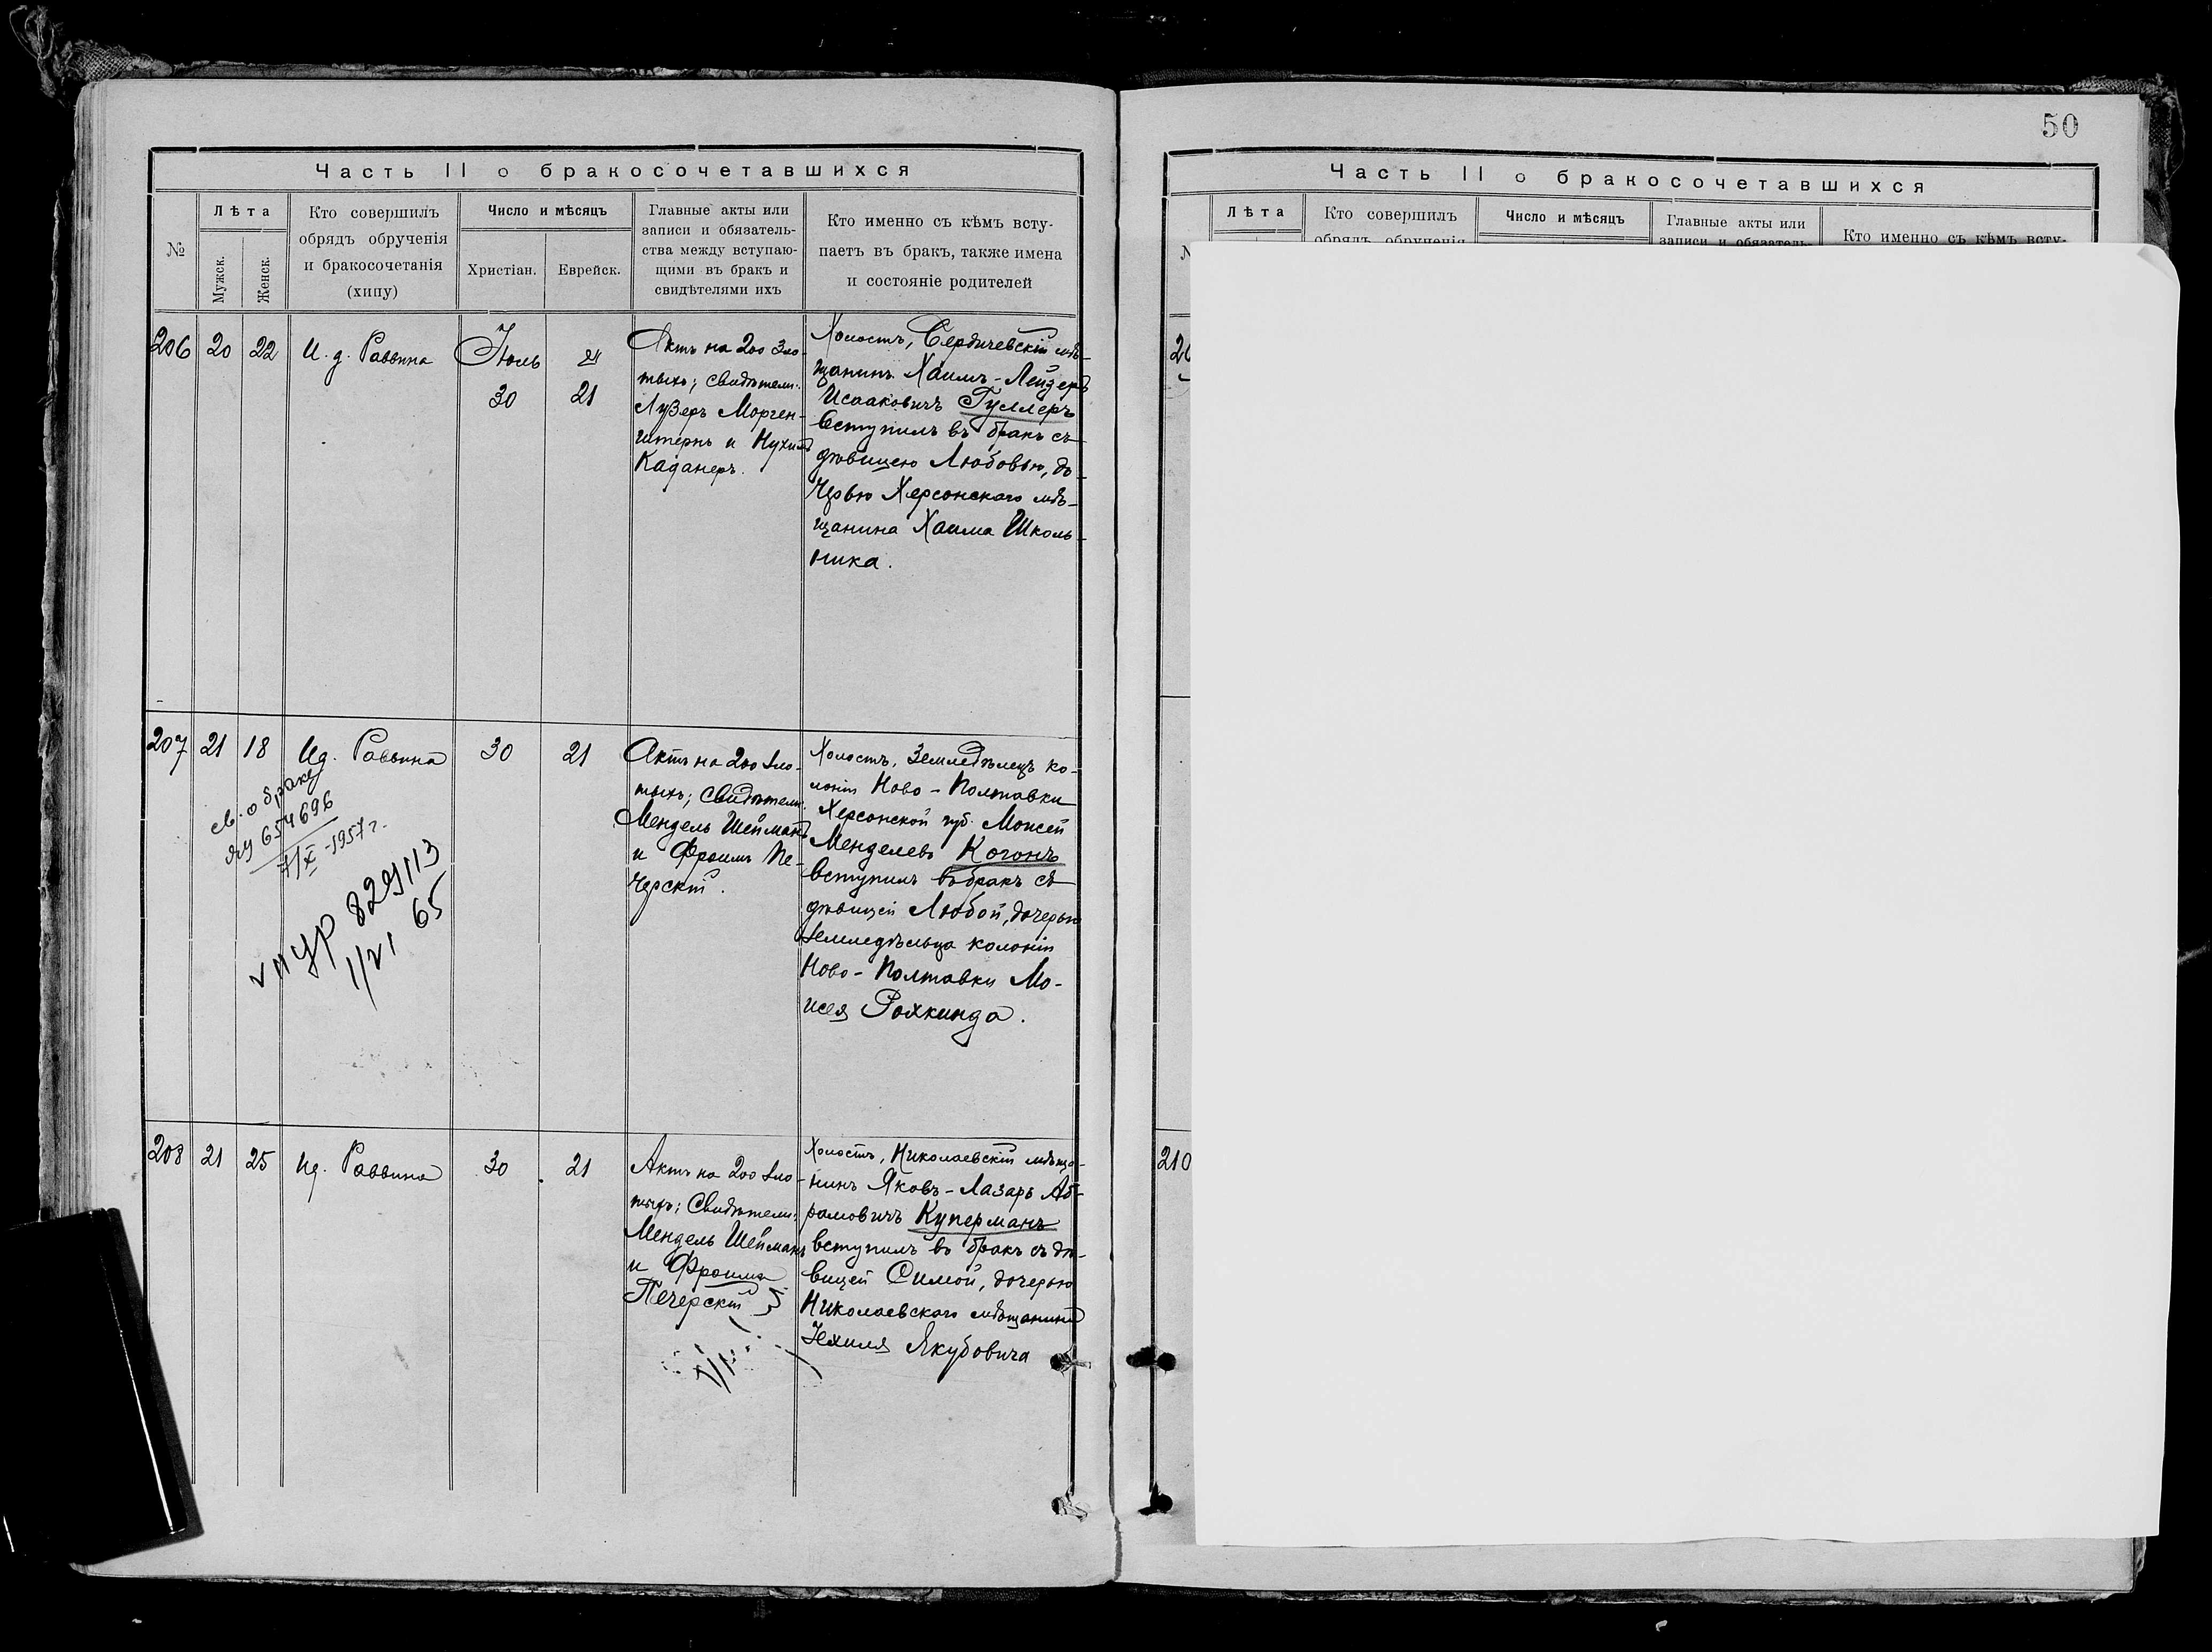 50
Часть II о бракосочетавшихся
№
Лѣта
Мужск.
Женск.
Кто совершилъ
обрядъ обрученія
и бракосочетанія
(хипу)
Число и мѣсяцъ
Христіан.
Еврейск.
Главные акты или
записи и обязатель-
ства между вступаю-
щими въ бракъ и
свидѣтелями ихъ
Кто именно съ кѣмъ всту-
паетъ въ бракъ, также имена
и состояніе родителей
206
20
22
И. д. Раввина
Іюль
30
21
Актъ на 200 зло-
тыхъ; свидѣтели:
Лузеръ Морген-
штернъ и Нухимъ
Каданеръ.
Холостъ, Бердичевскій мѣ-
щанинъ Хаимъ-Лейзеръ
Исааковичъ Гуллеръ
вступилъ въ бракъ съ
дѣвицею Любовью, до-
черью Херсонскаго мѣ-
щанина Хаима Школь-
ника.
207
21
18
Ид. Раввина
30
21
св. о браке
654696
7/X-1957г.
829113
65
Актъ на 200 зло-
тыхъ; Свидѣтели:
Мендель Шейманъ
и Фроимъ Пе-
черскій.
Холостъ, Земледѣлецъ ко-
лоніи Ново-Полтавки
Херсонской губ. Моисей
Менделевъ Когонъ
вступилъ въ бракъ съ
дѣвицей Любой, дочерью
Земледѣльца колоніи
Ново-Полтавки Мо-
исея Рохкинда.
208
21
25
Ид. Раввина
30
21
Актъ на 200 зло-
тыхъ; Свидѣтели:
Мендель Шейманъ
и Фроимъ
Печерскій
Холостъ, Николаевскій мѣща-
нинъ Яковъ-Лазарь Аб-
рамовичъ Куперманъ
вступилъ въ бракъ съ дѣ-
вицей Симой, дочерью
Николаевскаго мѣщанина
Іехиля Якубовича
Часть II о бракосочетавшихся
Лѣта
Кто совершилъ
обрядъ обрученія
Число и мѣсяцъ
Главные акты или
записи и обязатель-
Кто именно съ кѣмъ всту-
210